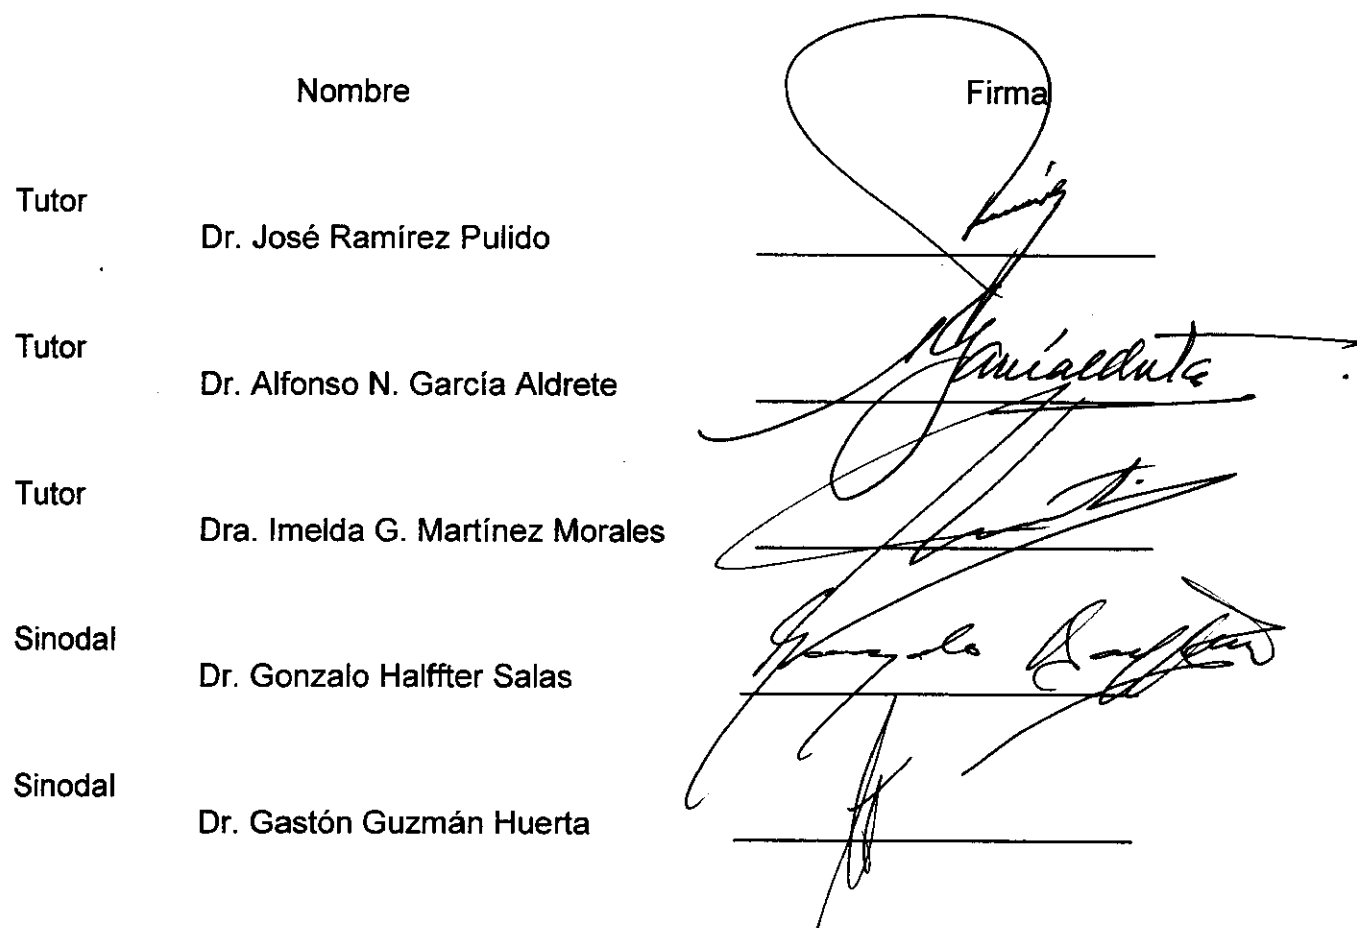 Nombre Firma
Tutor
Dr. José Ramírez Pulido
Tutor
Dr. Alfonso N. García Aldrete
Garcíaldrete
Tutor
Dra. Imelda G. Martínez Morales
Sinodal
Dr. Gonzalo Halffter Salas
Gonzalo Halffter
Sinodal
Dr. Gastón Guzmán Huerta